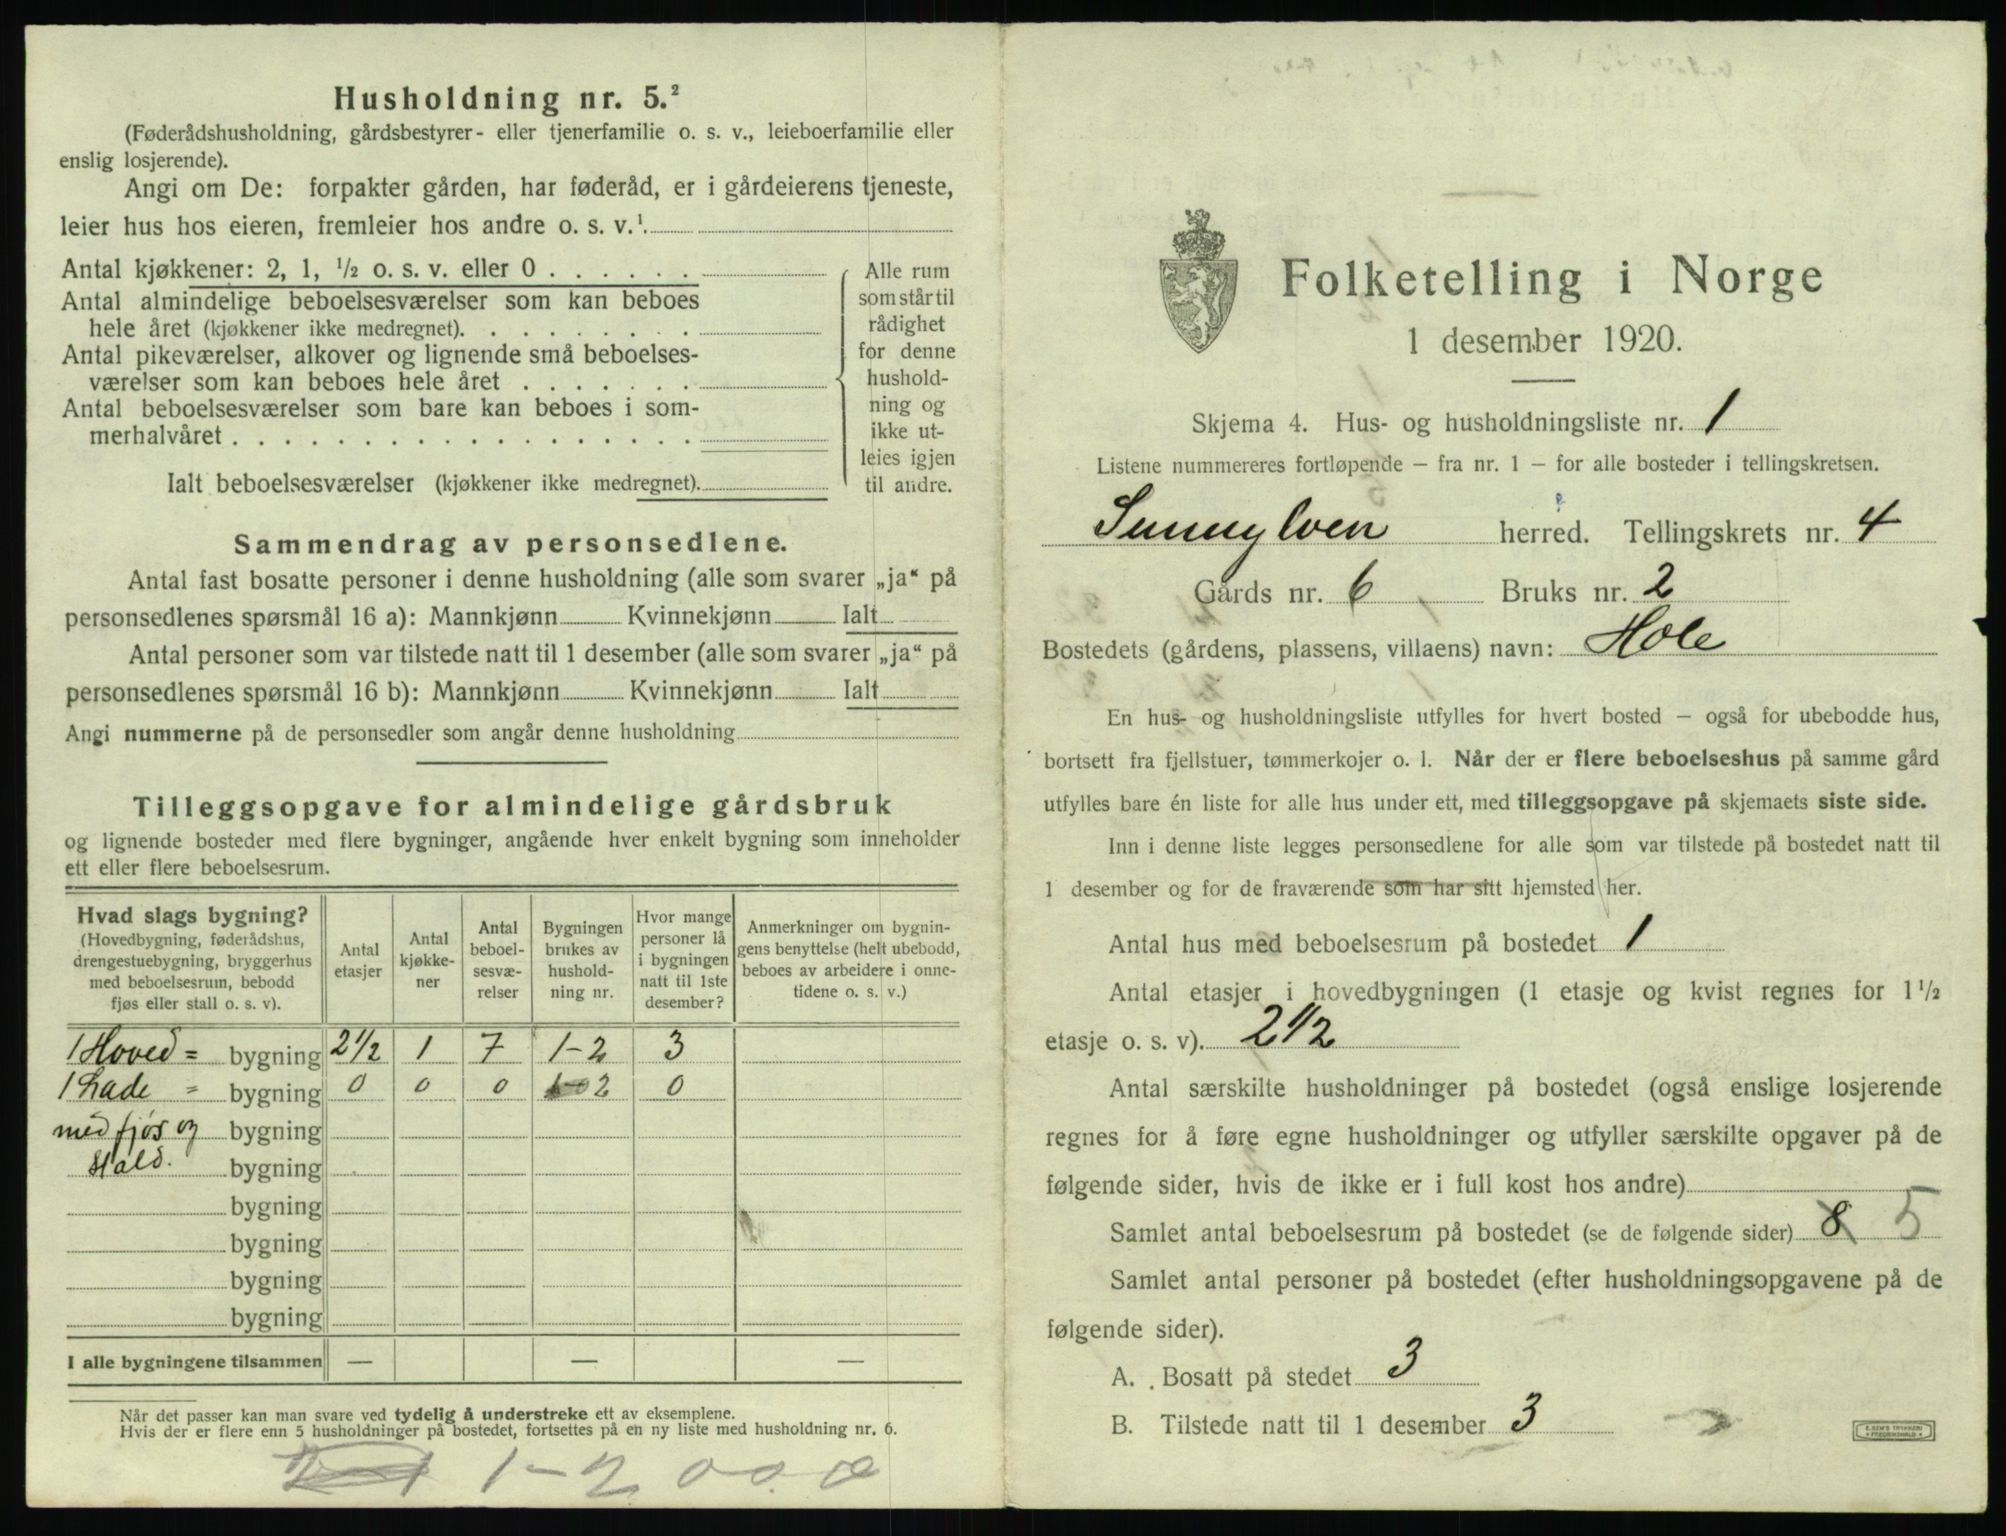 Husholdning nr. 5.²
(Føderådshusholdning, gårdsbestyrer- eller tjenerfamilie o. s. v., leieboerfamilie eller
enslig losjerende).
Angi om De: forpakter gården, har føderåd, er i gårdeierens tjeneste,
leier hus hos eieren, fremleier hos andre o. s. v.¹.
Antal kjøkkener: 2, 1, ½ o. s. v. eller 0 . . . . . .
Antal almindelige beboelsesværelser som kan beboes
hele året (kjøkkener ikke medregnet). . . . . . . . .
Antal pikeværelser, alkover og lignende små beboelses-
værelser som kan beboes hele året . . . . . . .
Antal beboelsesværelser som bare kan beboes i som-
merhalvåret . . . . . . . . . . . . . . . . . .
Ialt beboelsesværelser (kjøkkener ikke medregnet).
Alle rum
som står til
rådighet
for denne
hushold-
ning og
ikke ut-
leies igjen
til andre.
Sammendrag av personsedlene.
Antal fast bosatte personer i denne husholdning (alle som svarer „ja“ på
personsedlenes spørsmål 16 a): Mannkjønn Kvinnekjønn Ialt
Antal personer som var tilstede natt til 1 desember (alle som svarer „ja“ på
personsedlenes spørsmål 16 b): Mannkjønn Kvinnekjønn Ialt
Angi nummerne på de personsedler som angår denne husholdning
Tilleggsopgave for almindelige gårdsbruk
og lignende bosteder med flere bygninger, angående hver enkelt bygning som inneholder
ett eller flere beboelsesrum.
Hvad slags bygning?
(Hovedbygning, føderådshus,
drengestuebygning, bryggerhus
med beboelsesrum, bebodd
fjøs eller stall o. s. v).
Antal
etasjer
Antal
kjøkke-
ner
Antal
beboel-
sesvæ-
relser
Bygningen
brukes av
hushold-
ning nr.
Hvor mange
personer lå
i bygningen
natt til 1ste
desember?
Anmerkninger om bygnin-
gens benyttelse (helt ubebodd,
beboes av arbeidere i onne-
tidene o. s. v.)
1 Hoved = bygning 2½ 1 7 1-2 3
1 Lade = bygning 0 0 0 2 0
med fjøs og bygning
stald. bygning
bygning
bygning
bygning
bygning
I alle bygningene tilsammen — — —
Når det passer kan man svare ved tydelig å understreke ett av eksemplene.
Hvis der er flere enn 5 husholdninger på bostedet, fortsettes på en ny liste med husholdning nr. 6.
1-2 00.0
Folketelling i Norge
1 desember 1920.
Skjema 4. Hus- og husholdningsliste nr. 1
Listene nummereres fortløpende – fra nr. 1 – for alle bosteder i tellingskretsen.
Sunnylven herred. Tellingskrets nr. 4
Gårds nr. 6 Bruks nr. 2
Bostedets (gårdens, plassens, villaens) navn: Hole
En hus- og husholdningsliste utfylles for hvert bosted – også for ubebodde hus,
bortsett fra fjellstuer, tømmerkojer o. l. Når der er flere beboelseshus på samme gård
utfylles bare én liste for alle hus under ett, med tilleggsopgave på skjemaets siste side.
Inn i denne liste legges personsedlene for alle som var tilstede på bostedet natt til
1 desember og for de fraværende som har sitt hjemsted her.
Antal hus med beboelsesrum på bostedet 1
Antal etasjer i hovedbygningen (1 etasje og kvist regnes for 1½
etasje o. s. v). 2½
Antal særskilte husholdninger på bostedet (også enslige losjerende
regnes for å føre egne husholdninger og utfyller særskilte opgaver på de
følgende sider, hvis de ikke er i full kost hos andre)
Samlet antal beboelsesrum på bostedet (se de følgende sider) 8 5
Samlet antal personer på bostedet (efter husholdningsopgavene på de
følgende sider).
A. Bosatt på stedet 3
B. Tilstede natt til 1 desember 3